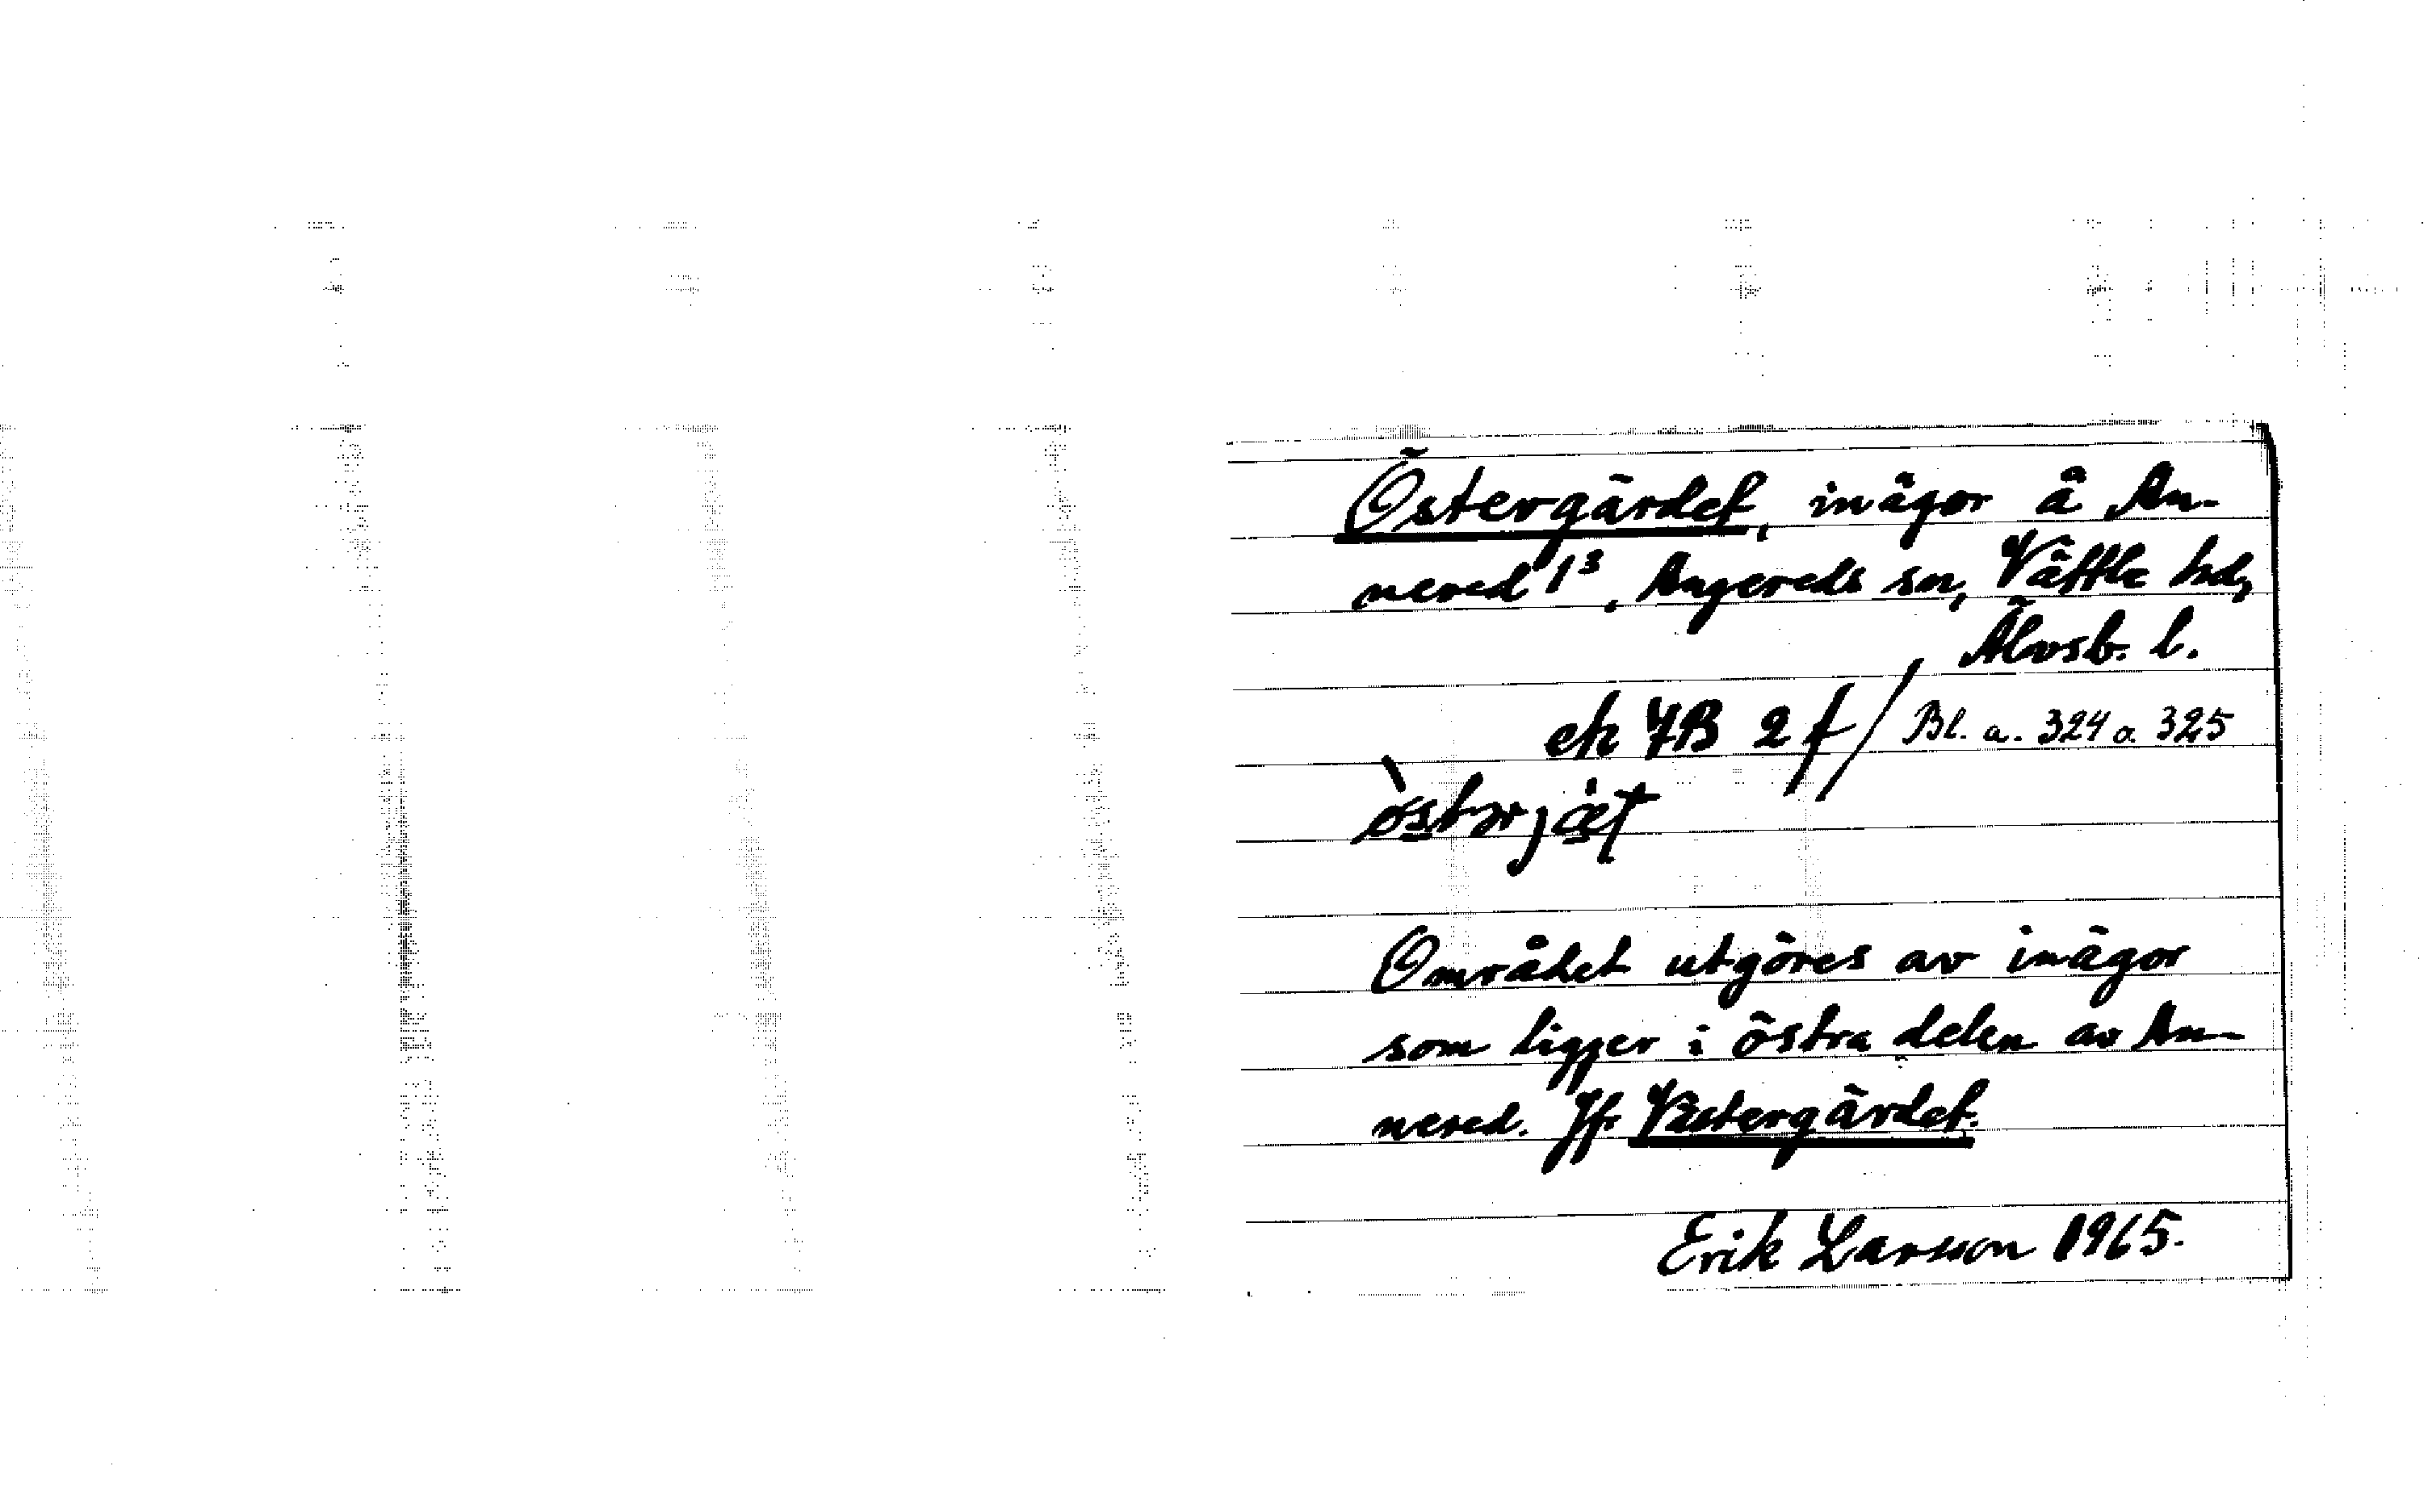 Östergärdet, inägor å An-
nered 1³, Angereds sn, Vättle hd,
Älvsb. l.
ek 7B 2f / Bl. a. 324 o. 325
Området utgöres av inägor
som ligger i östra delen av An-
nered. Jfr Västergärdet.
Erik Larsson 1965.